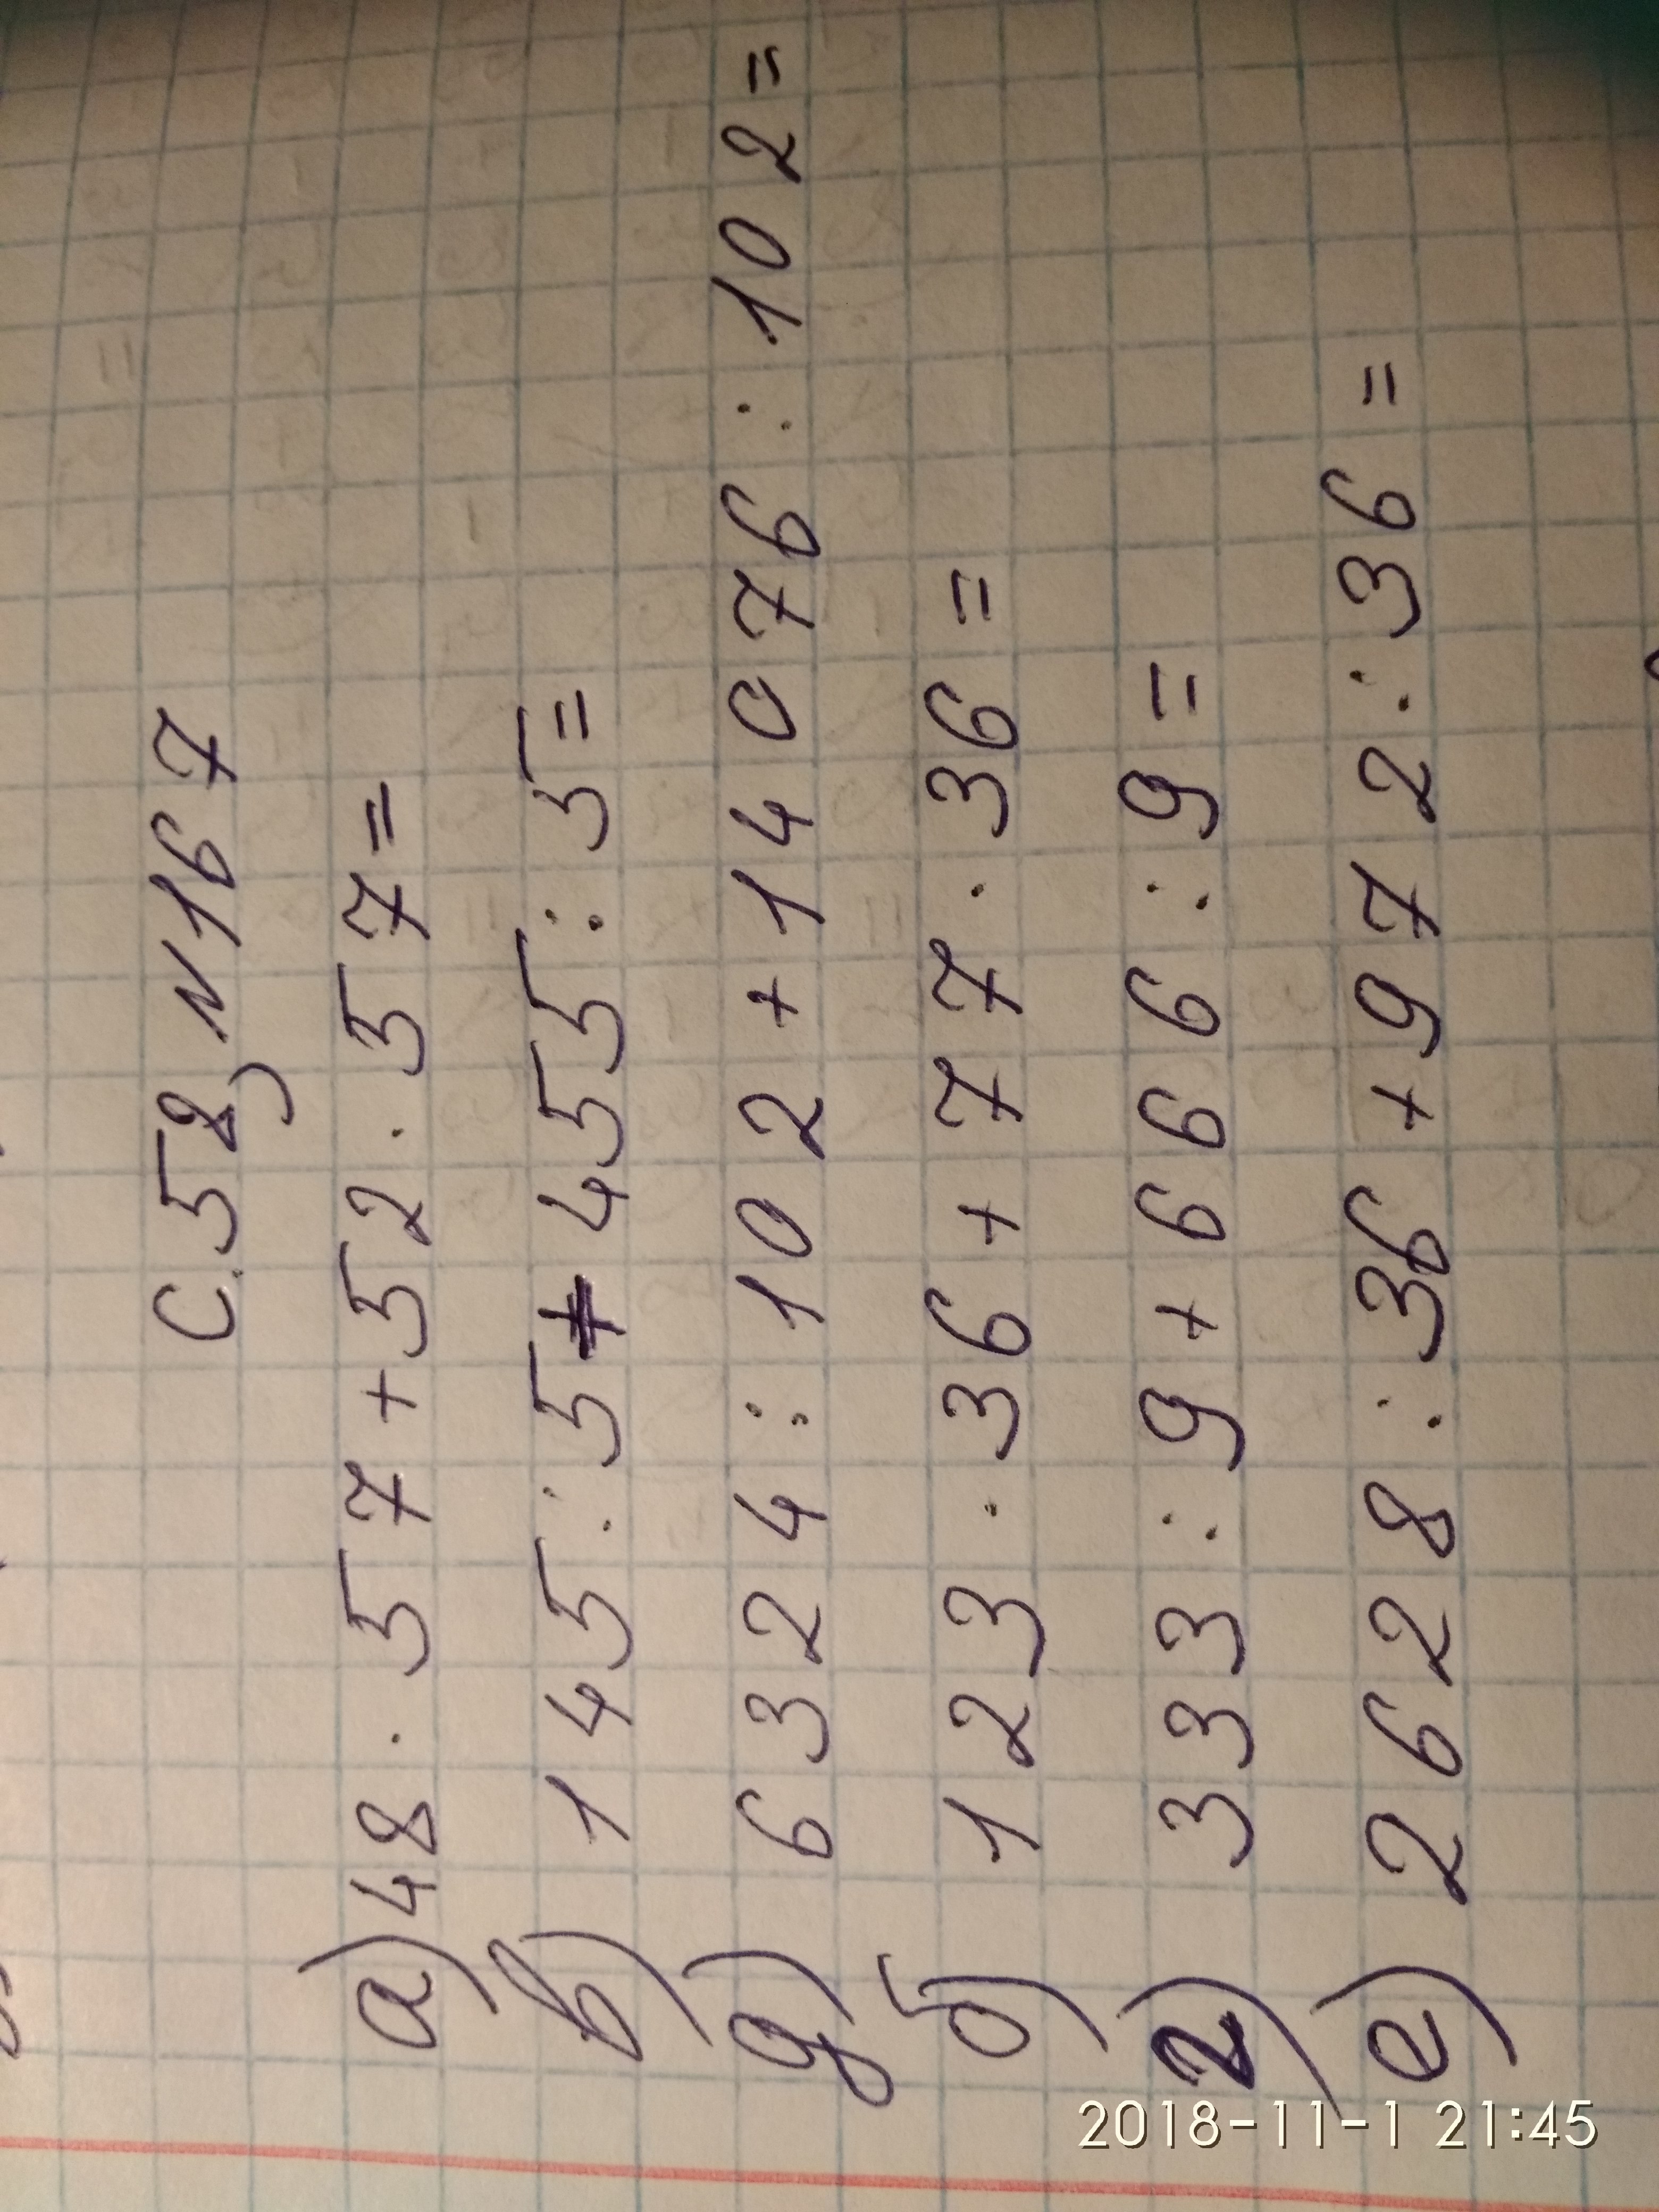 С.58, N167
а) 48 · 57 + 52 · 57 =
в) 145 : 5 + 455 : 5 =
д) 6324 : 102 + 14076 : 102 =
б) 123 · 36 + 77 · 36 =
г) 333 : 9 + 666 : 9 =
е) 2628 : 36 + 972 : 36 =
2018-11-1 21:45